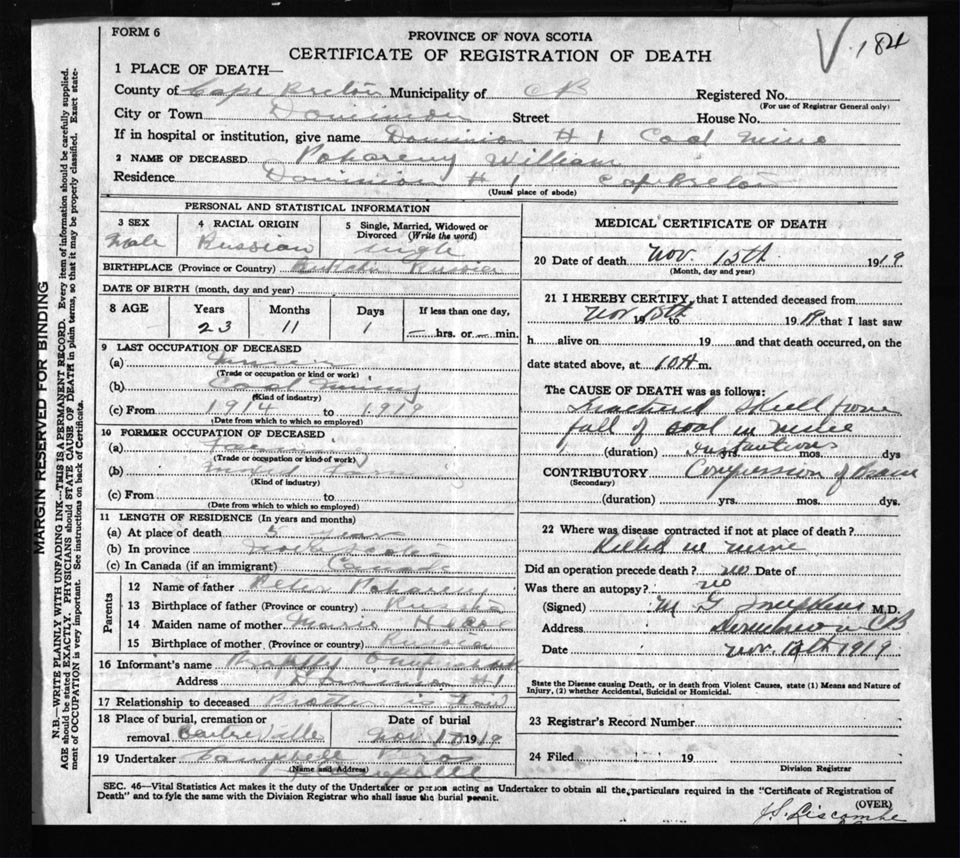 FORM 6
PROVINCE OF NOVA SCOTIA
CERTIFICATE OF REGISTRATION OF DEATH
184
1 PLACE OF DEATH—
County of Cape Breton Municipality of CB Registered No.
(For use of Registrar General only)
City or Town Dominion Street House No.
If in hospital or institution, give name Dominion #1 Coal Mine
2 NAME OF DECEASED Pohareny William
Residence Dominion #1 Cape Breton
(Usual place of abode)
PERSONAL AND STATISTICAL INFORMATION
3 SEX 4 RACIAL ORIGIN 5 Single, Married, Widowed or Divorced (Write the word)
Male Russian single
BIRTHPLACE (Province or Country)
DATE OF BIRTH (month, day and year)
8 AGE Years Months Days If less than one day,
23 11 1 hrs. or min.
9 LAST OCCUPATION OF DECEASED
(a)
(Trade or occupation or kind or work)
(b) Coal Mining
(Kind of industry)
(c) From 1914 to 1919
(Date from which to which so employed)
10 FORMER OCCUPATION OF DECEASED
(a)
(Trade or occupation or kind or work)
(b) mixed Farming
(Kind of industry)
(c) From to
(Date from which to which so employed)
11 LENGTH OF RESIDENCE (In years and months)
(a) At place of death 5 years
(b) In province Nova Scotia
(c) In Canada (if an immigrant) Canada
Parents
12 Name of father Peter Pohareny
13 Birthplace of father (Province or country) Russia
14 Maiden name of mother Marie
15 Birthplace of mother (Province or country) Russia
16 Informant's name
Address Dominion #1
17 Relationship to deceased Brother in Law
18 Place of burial, cremation or removal Date of burial
Nov 17 1919
19 Undertaker Campbell
(Name and Address)
MEDICAL CERTIFICATE OF DEATH
20 Date of death Nov. 15th 1919
(Month, day and year)
21 I HEREBY CERTIFY, that I attended deceased from
Nov 15th 19 to 1919 that I last saw
h alive on 19 and that death occurred, on the
date stated above, at 10 m.
The CAUSE OF DEATH was as follows:
Fractured Skull from
fall of coal in mine
(duration) mos. dys
CONTRIBUTORY Compression of Brain
(Secondary)
(duration) yrs. mos. dys.
22 Where was disease contracted if not at place of death?
Killed in mine
Did an operation precede death? no Date of
Was there an autopsy? no
(Signed) M. G. M.D.
Address Dominion CB
Date Nov. 1919
State the Disease causing Death, or in death from Violent Causes, state (1) Means and Nature of
Injury, (2) whether Accidental, Suicidal or Homicidal.
23 Registrar's Record Number
24 Filed 19
Division Registrar
SEC. 46—Vital Statistics Act makes it the duty of the Undertaker or person acting as Undertaker to obtain all the particulars required in the "Certificate of Registration of
Death" and to fyle the same with the Division Registrar who shall issue the burial permit.
(OVER)
J.S. Liscombe
MARGIN RESERVED FOR BINDING
N.B.—WRITE PLAINLY WITH UNFADING INK—THIS IS A PERMANENT RECORD. Every item of information should be carefully supplied.
AGE should be stated EXACTLY. PHYSICIANS should STATE CAUSE OF DEATH in plain terms, so that it may be properly classified. Exact state-
ment of OCCUPATION is very important. See instructions on back of Certificate.